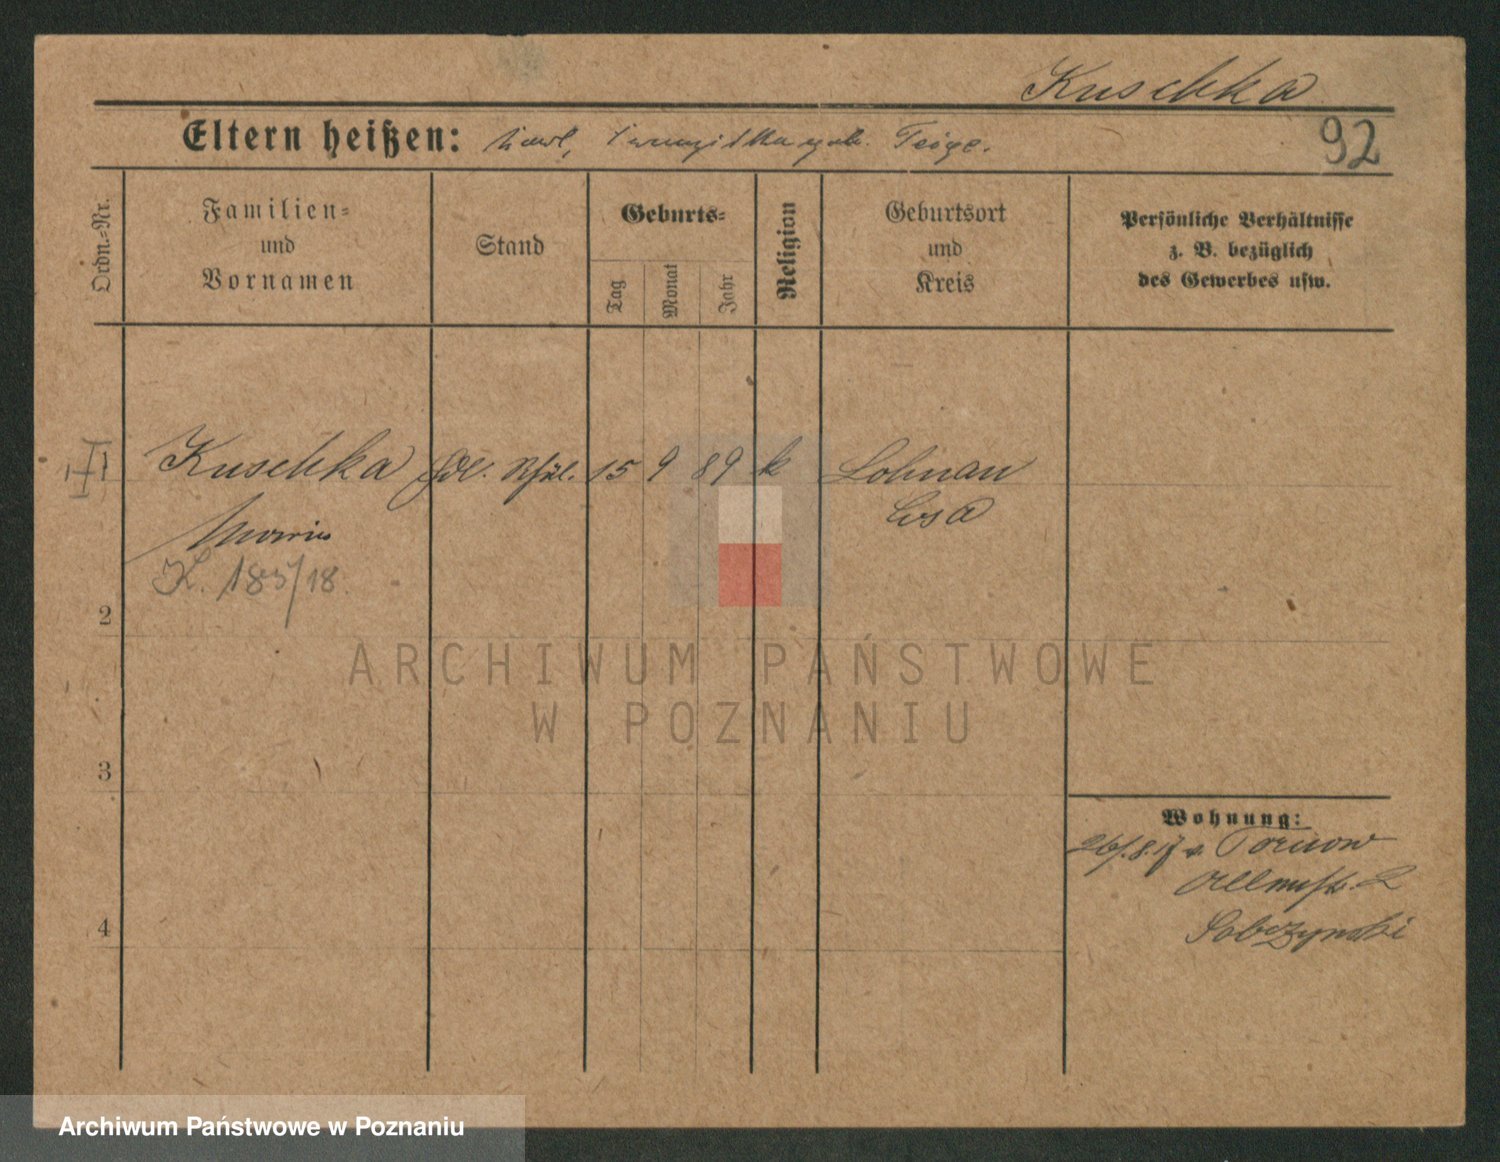 Kuschka
Eltern heißen: Karl, geb. Feige.
92
Ordn.-Nr.
Familien-
und
Vornamen
Stand
Geburts-
Tag
Monat
Jahr
Religion
Geburtsort
und
Kreis
Persönliche Verhältnisse
z. B. bezüglich
des Gewerbes usw.
1 Kuschka 15 9 89 k
Lissa
K. 183/18.
2
3
4
Wohnung:
26/.8.17 v. Tornow
Sobczynski
ARCHIWUM PAŃSTWOWE
W POZNANIU
Archiwum Państwowe w Poznaniu